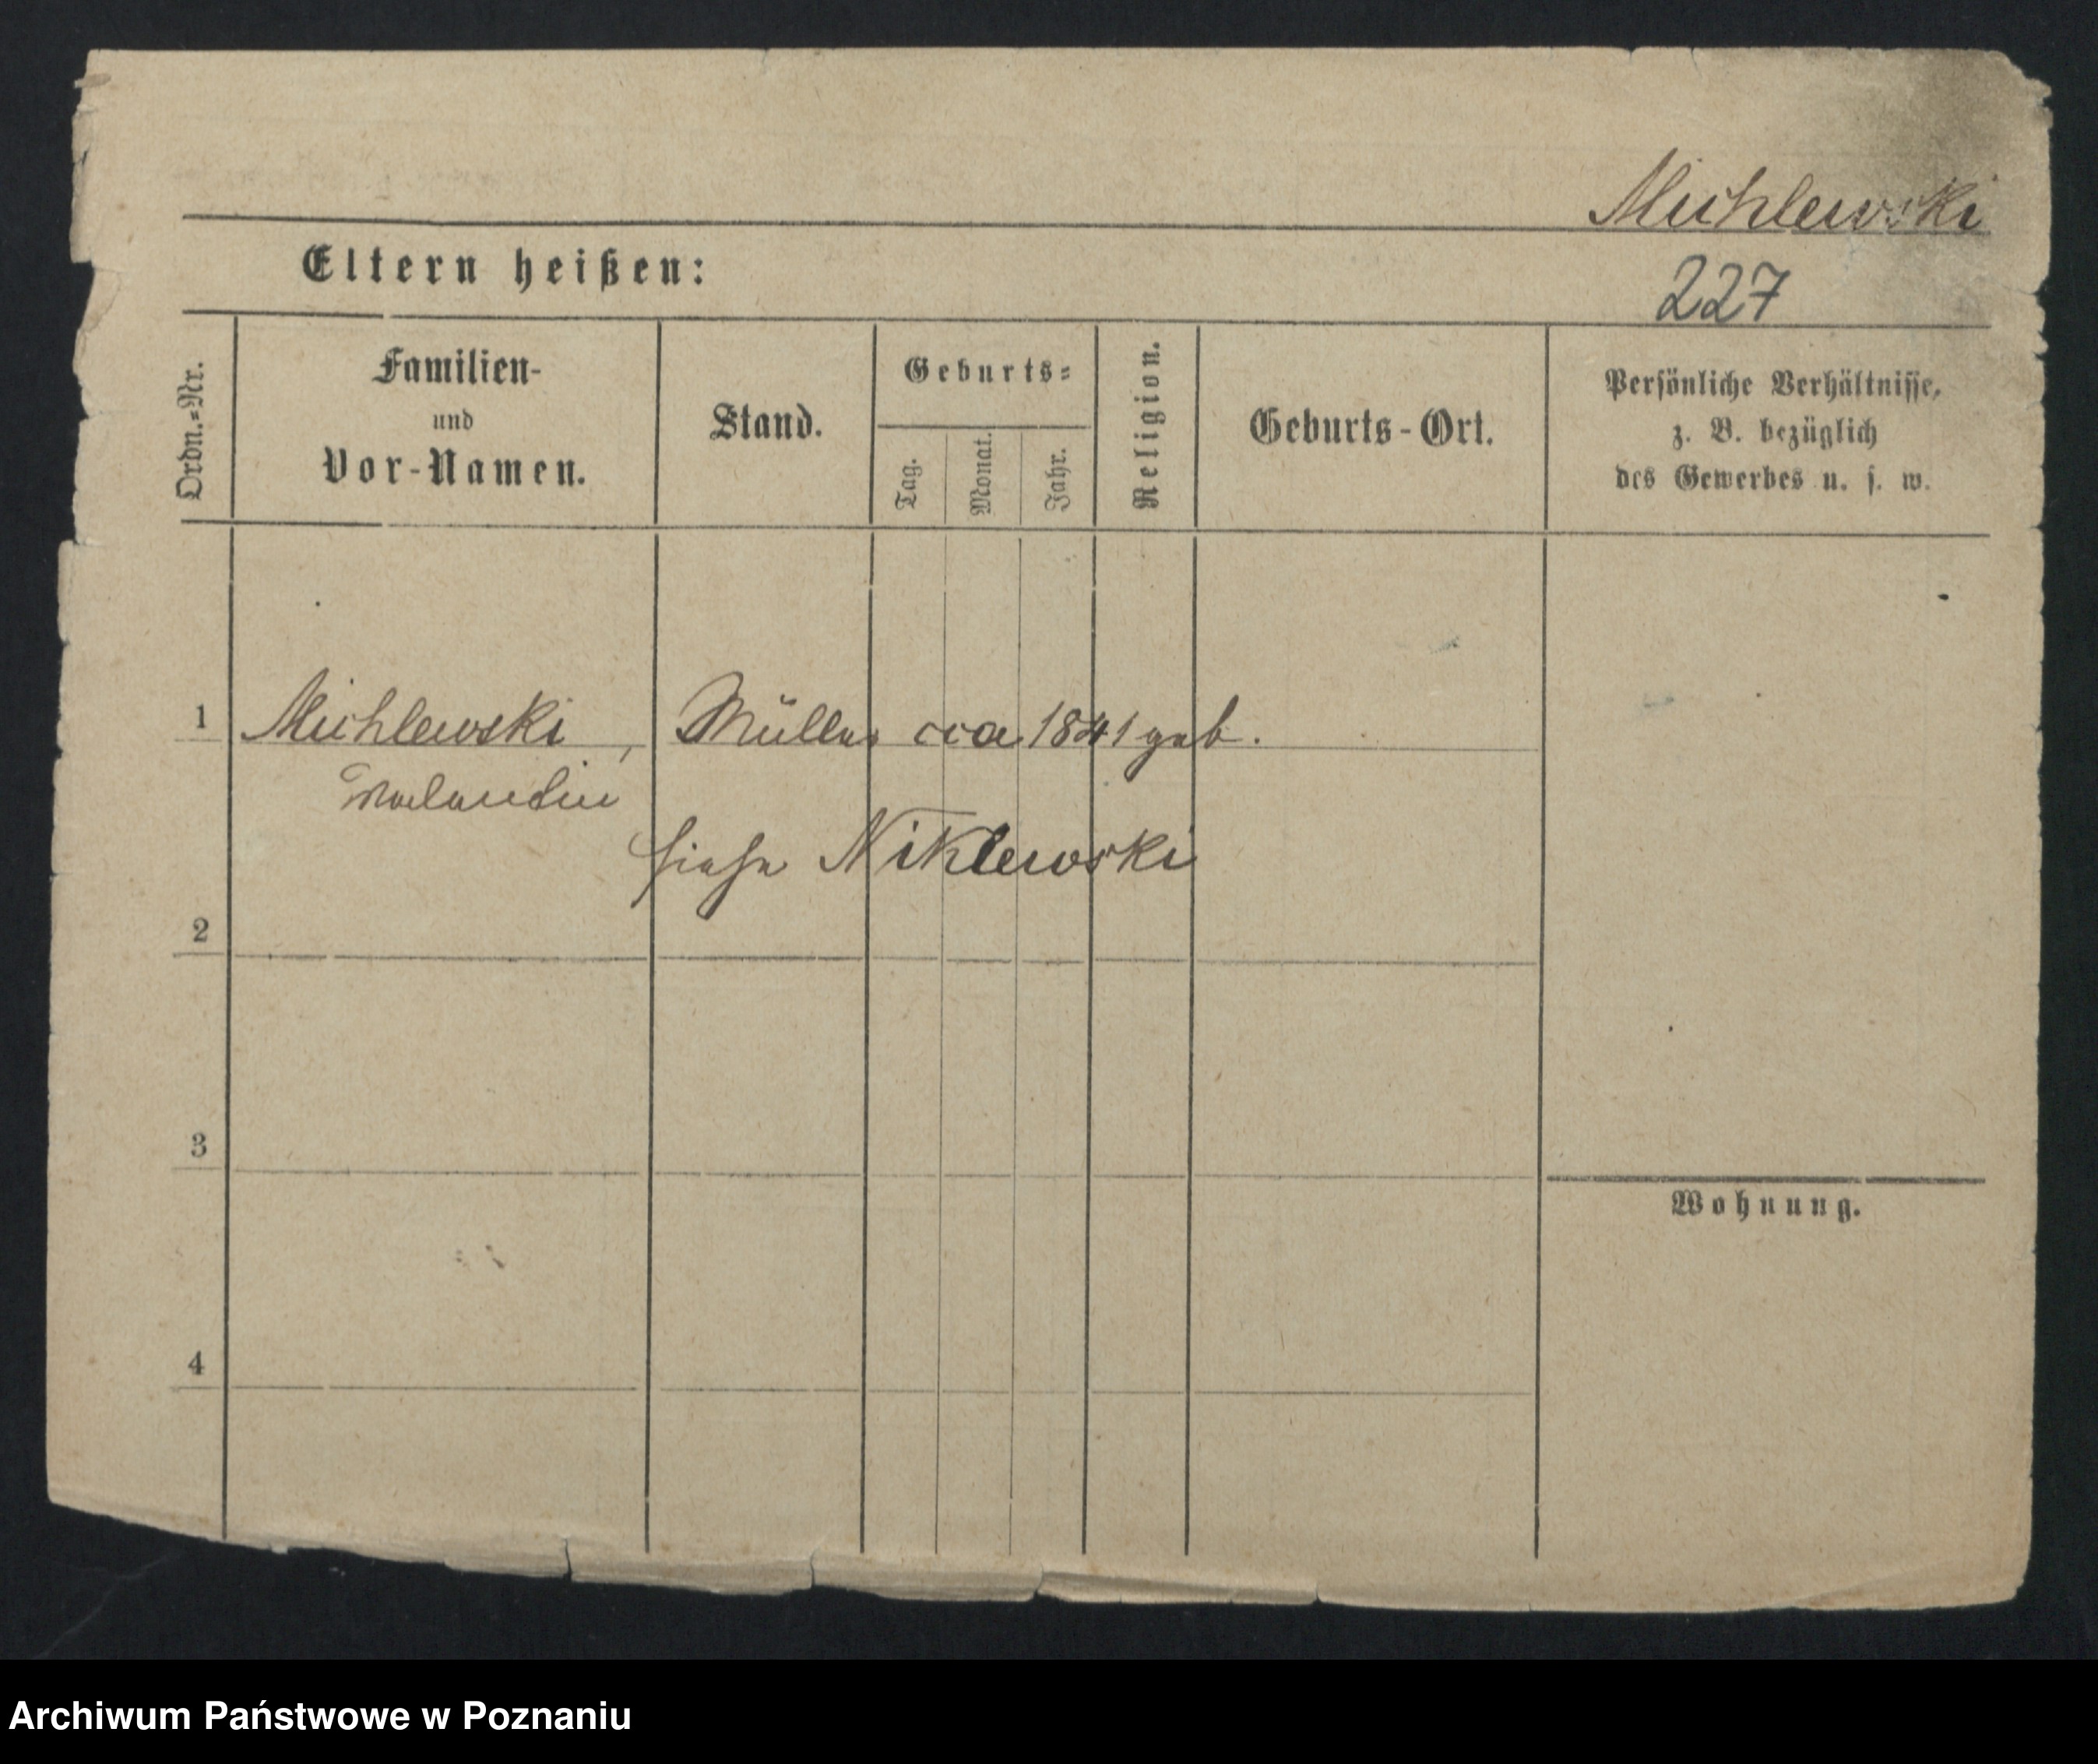 Michlewski
Eltern heißen:
227
Ordn.=Nr.
Familien-
und
Vor-Namen.
Stand.
Geburts=
Tag.
Monat.
Jahr.
Religion.
Geburts-Ort.
Persönliche Verhältnisse,
z. B. bezüglich
des Gewerbes u. s. w.
1 Michlewski, Müller cca 1841 geb.
Valentin
siehe Niklewski
2
3
Wohnung.
4
Archiwum Państwowe w Poznaniu